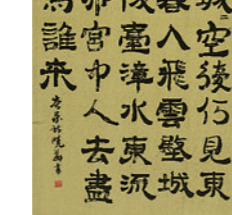 空復何見東
暮入飛雲殿城
臺漳水東流
宮中人去盡
為誰來